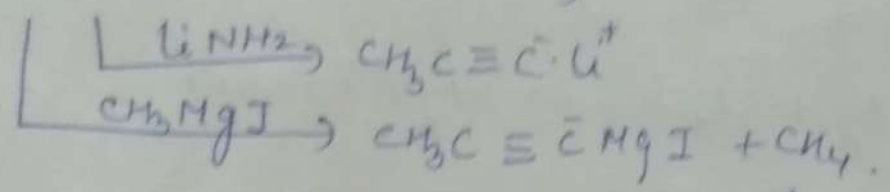 LiNH2 → CH3C≡C̄·Li⁺
CH3MgI → CH3C≡C̄MgI + CH4.